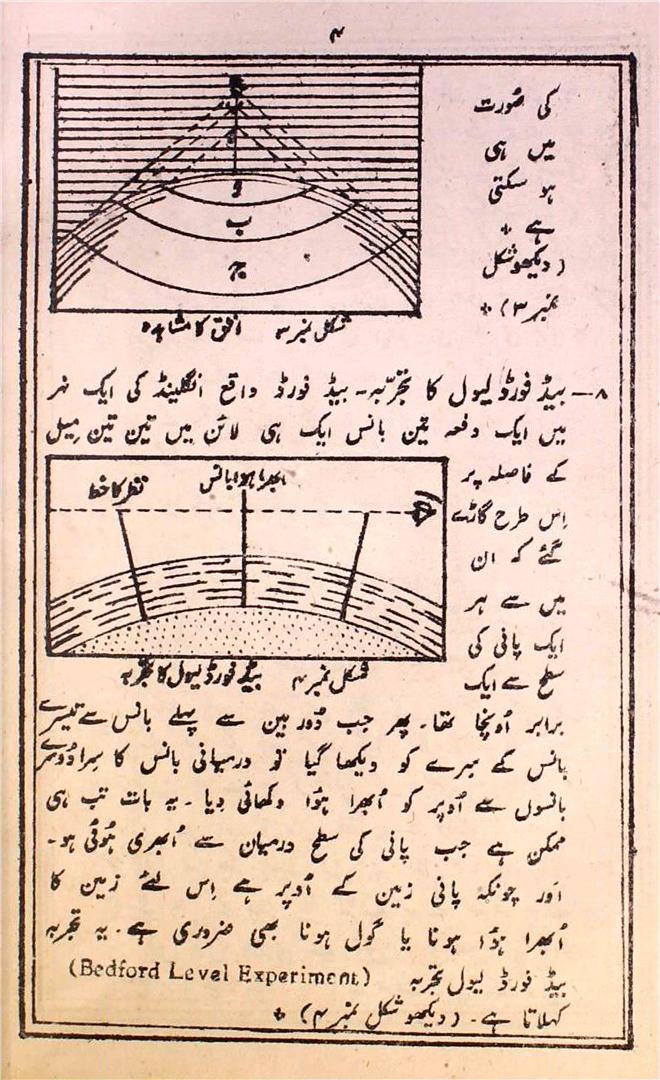 ۴
کی صُورت
میں ہی
ہو سکتی
ہے ٭
(دیکھو شکل
نمبر ۳) ٭
و
ب
ج
شکل نمبر ۳ افق کا مشاہدہ
۸ — بیڈ فورڈ لیول کا تجربہ۔ بیڈ فورڈ واقع انگلینڈ کی ایک نہر
میں ایک دفعہ تین بانس ایک ہی لائن میں تین تین میل
کے فاصلہ پر
اِس طرح گاڑے
گئے کہ ان
میں سے ہر
ایک پانی کی
سطح سے ایک
ابھرا ہوا بانس
نظر کا خط
شکل نمبر ۴ بیڈ فورڈ لیول کا تجربہ
برابر اُونچا تھا۔ پھر جب دُور بین سے پہلے بانس سے تیسرے
بانس کے سِرے کو دیکھا گیا تو درمیانی بانس کا سِرا دُوسرے
بانسوں سے اُوپر کو اُبھرا ہؤا دکھائی دِیا۔ یہ بات تب ہی
ممکن ہے جب پانی کی سطح درمیان سے اُبھری ہُوئی ہو۔
اَور چونکہ پانی زمین کے اُوپر ہے اِس لئے زمین کا
اُبھرا ہؤا ہونا یا گول ہونا بھی ضروری ہے۔ یہ تجربہ
بیڈ فورڈ لیول تجربہ (Bedford Level Experiment)
کہلاتا ہے۔ (دیکھو شکل نمبر ۴) ٭